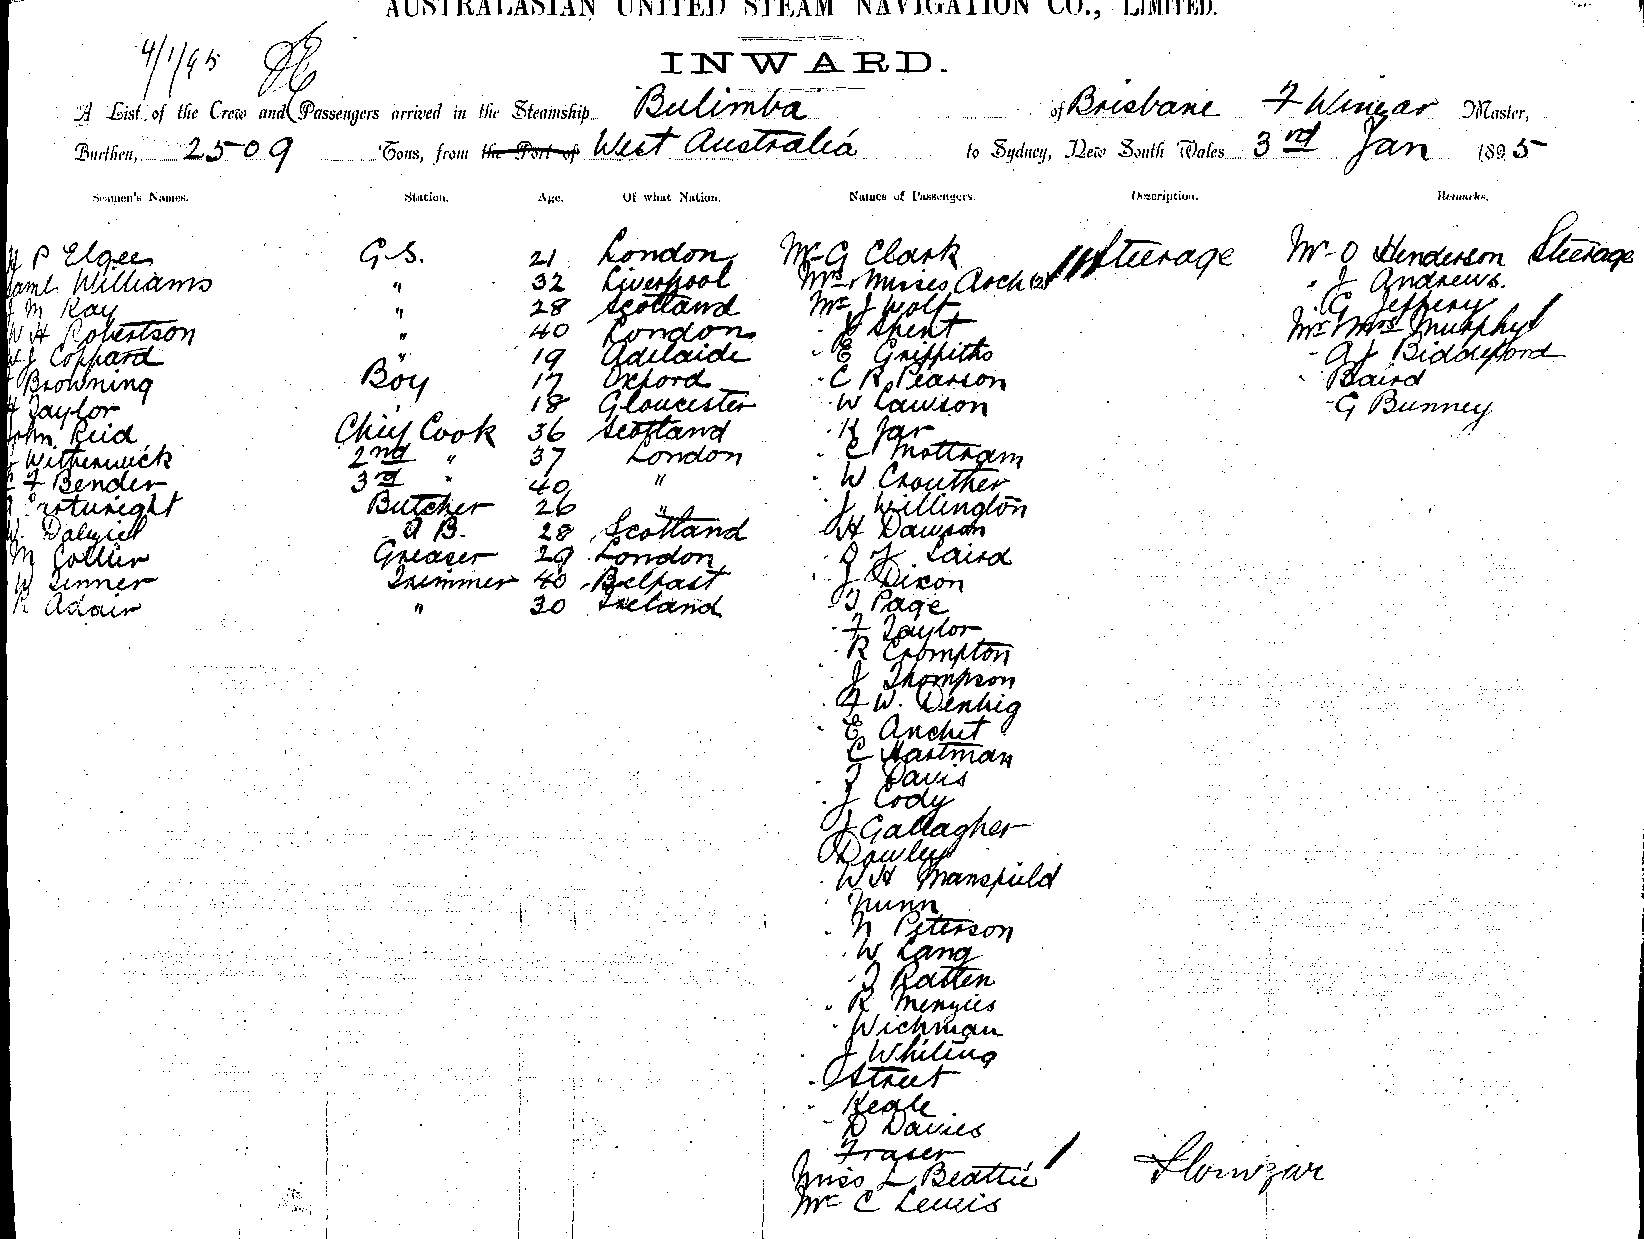 AUSTRALASIAN UNITED STEAM NAVIGATION CO., LIMITED.
INWARD.
4/1/95
A List of the Crew and Passengers arrived in the Steamship Bulimba of Brisbane Master,
Burthen, 2509 Tons, from the Port of West Australia to Sydney, New South Wales 3rd Jan 1895
Seamen's Names. Station. Age. Of what Nation. Names of Passengers. Description. Remarks.
P Elgee G.S. 21 London Mr G Clark Steerage Mr O Henderson Steerage
Williams " 32 Liverpool Mrs & Misses Archer (2) " J Andrews.
M Kay " 28 Scotland Mr J Wolf " G Jeffery
W H Robertson " 40 London " J Shent Mr Mrs Murphy
J Coppard " 19 Adelaide " E Griffiths " A J Biddeford
Browning Boy 17 Oxford " C R Pearson " Baird
Taylor " 18 Gloucester " W Lawson " G Bunney
John Reid Chief Cook 36 Scotland " K Jar
Witherwick 2nd " 37 London " C Mottram
F Bender 3rd " 40 " " W Crouther
Butcher 26 " " J Willington
Dalziel A B. 28 Scotland " H Dawson
M Collier Greaser 29 London J Laird
W Jenner Trimmer 40 Belfast " J Dixon
R Adair " 30 Ireland " J Page
" F Taylor
" R Crompton
" J Thompson
" F W. Denhig
" E Anchet
C Hartman
" J Davis
" J Cody
J Gallagher
Dowley
" W H Mansfield
" Nunn
" N Peterson
" W Lang
" J Ratten
" R Menzies
" Wichman
" J Whiting
" Street
" Keale
" D Davies
" Fraser
Miss L Beattie
Mr C Lewis